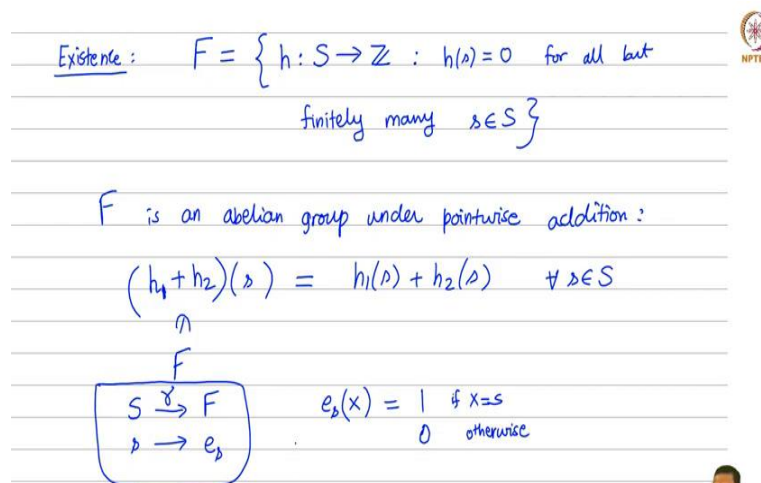 Existence : F = { h : S → ℤ : h(s) = 0 for all but
finitely many s ∈ S }
NPTE
F is an abelian group under pointwise addition :
(h₁ + h₂)(s) = h₁(s) + h₂(s) ∀ s ∈ S
F
S →^γ F e_s(x) = 1 if x=s
s → e_s 0 otherwise